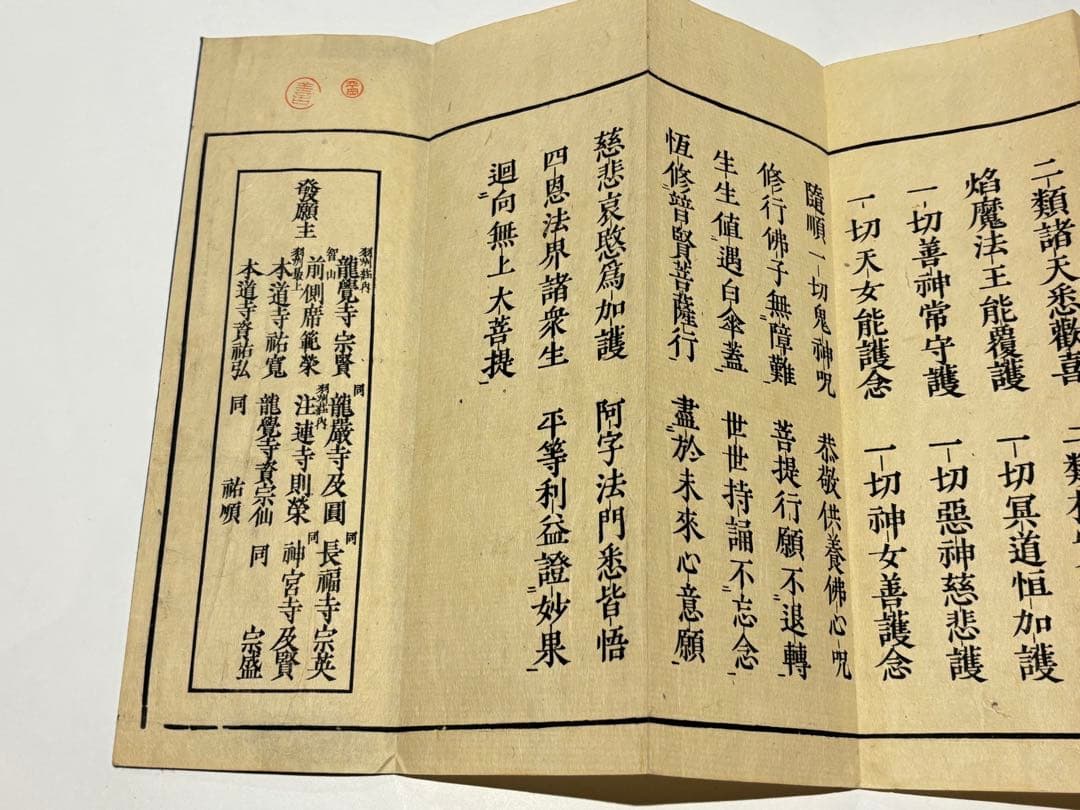 二類諸天悉歡喜　二類
焰魔法王能覆護　一切冥道恒加護
一切善神常守護　一切惡神慈悲護
一切天女能護念　一切神女善護念
隨順一切鬼神呪　恭敬供養佛心呪
修行佛子無障難　菩提行願不退轉
生生值遇白傘蓋　世世持誦不忘念
恆修普賢菩薩行　盡於未來心意願
慈悲哀愍爲加護　阿字法門悉皆悟
四恩法界諸衆生　平等利益證妙果
迴向無上大菩提
發願主
羽州庄内 龍覺寺 宗賢　同 龍嚴寺及圓　同 長福寺宗英
智山 前側席範榮　羽州庄内 注連寺則榮　同 神宮寺及賢
羽州最上 本道寺祐寬　龍覺寺資宗仙　同 宗盛
本道寺資祐弘　同 祐順